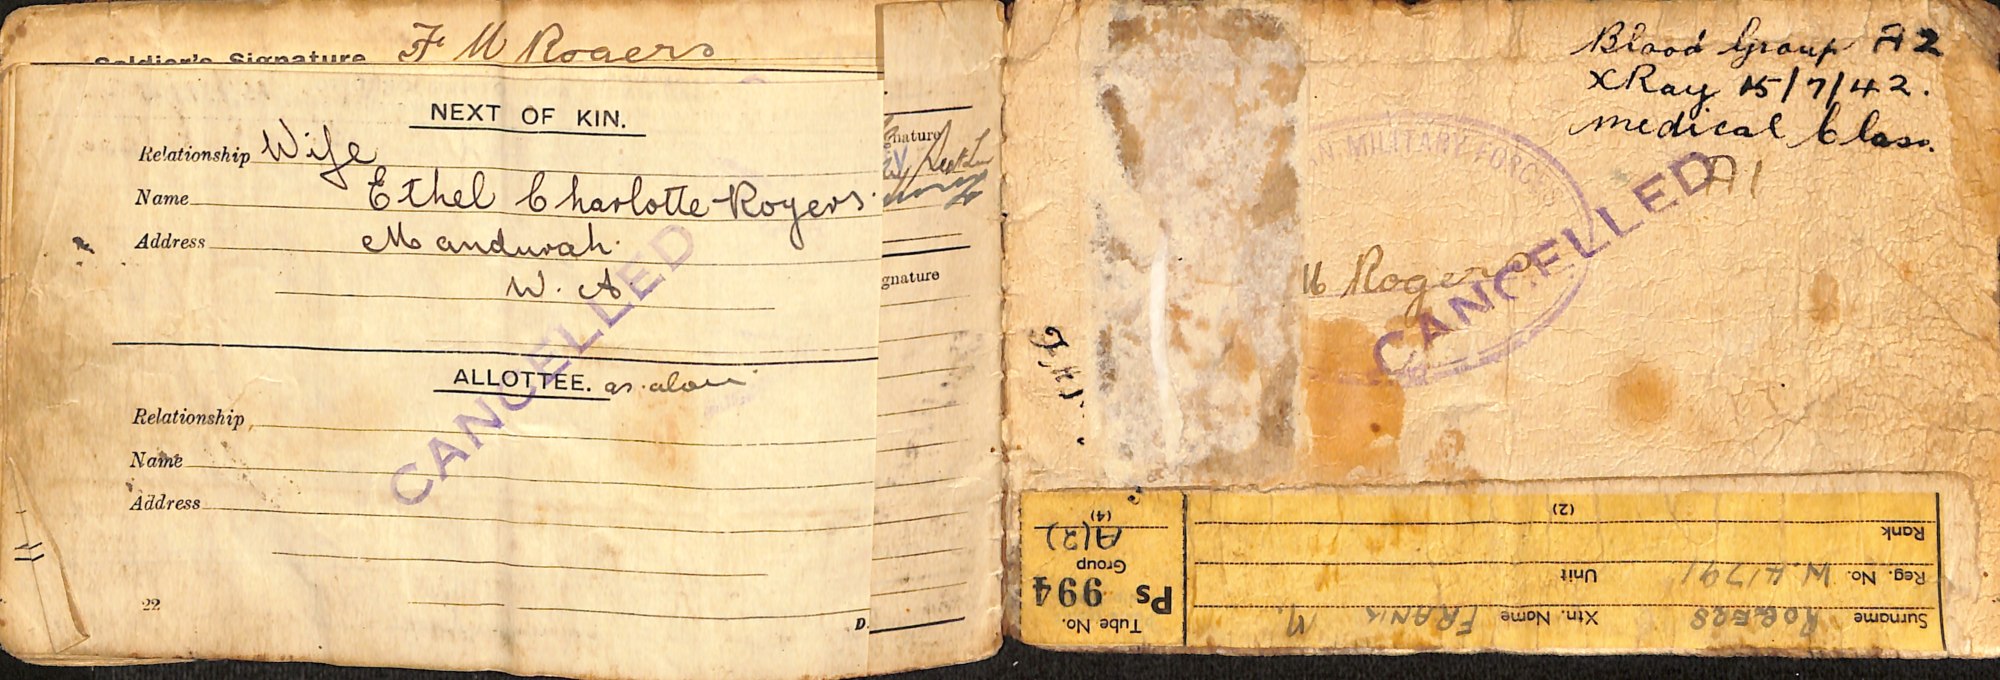 Soldier's Signature F M Rogers
NEXT OF KIN.
Relationship Wife
Name Ethel Charlotte Rogers
Address Mandurah
W. A
ALLOTTEE. as above
Relationship
Name
Address
22
D.
nature
gnature
Blood Group A2
XRay 15/7/42.
medical Class.
A1
MILITARY FORCES
M Rogers
CANCELLED
CANCELLED
Surname ROGERS Xtn. Name FRANK M.
Reg. No. W.41791 Unit
Rank
(2)
Tube No.
Ps 994
Group
A(2)
(4)